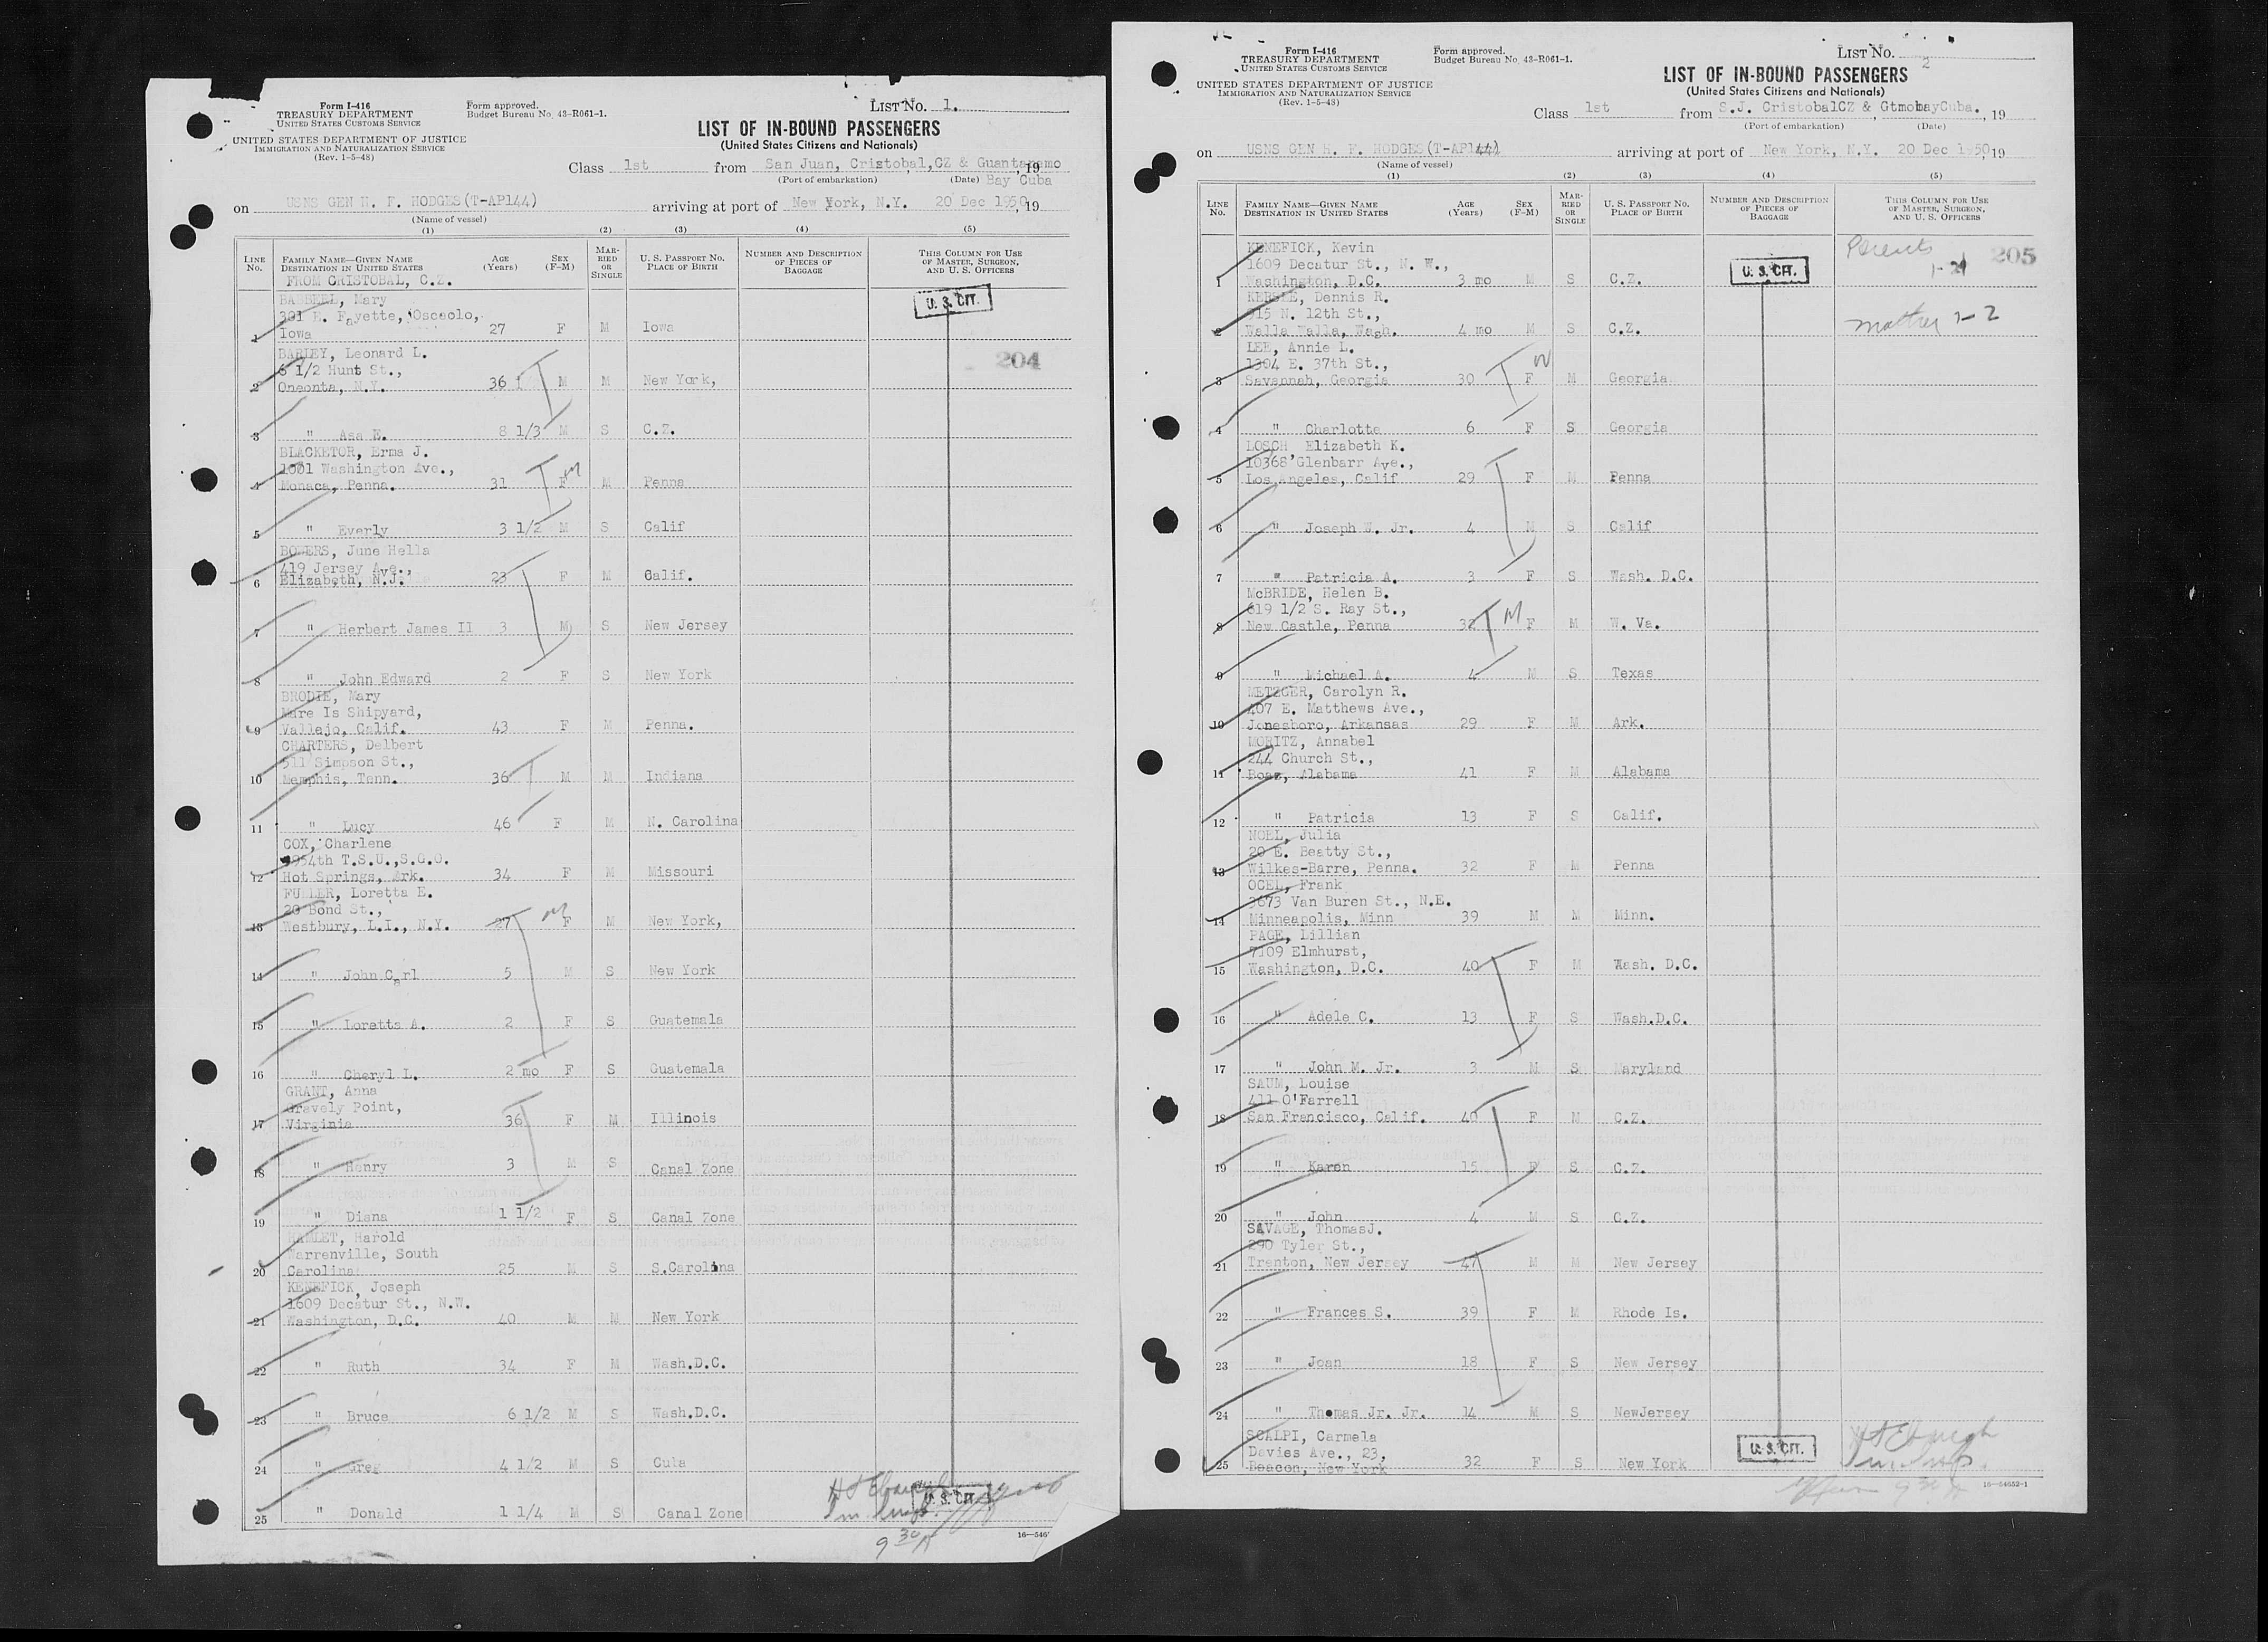 Form I-416
TREASURY DEPARTMENT
UNITED STATES CUSTOMS SERVICE
UNITED STATES DEPARTMENT OF JUSTICE
IMMIGRATION AND NATURALIZATION SERVICE
(Rev. 1-5-48)
Form approved.
Budget Bureau No. 43-R061-1.
LIST No. 1.
LIST OF IN-BOUND PASSENGERS
(United States Citizens and Nationals)
Class 1st from San Juan, Cristobal, CZ & Guantanamo, 19
(Port of embarkation) (Date) Bay Cuba
on USNS GEN H. F. HODGES(T-AP144) arriving at port of New York, N.Y. 20 Dec 1950, 19
(Name of vessel)
(1) (2) (3) (4) (5)
LINE No. FAMILY NAME—GIVEN NAME DESTINATION IN UNITED STATES AGE (Years) SEX (F-M) MARRIED OR SINGLE U. S. PASSPORT NO. PLACE OF BIRTH NUMBER AND DESCRIPTION OF PIECES OF BAGGAGE THIS COLUMN FOR USE OF MASTER, SURGEON, AND U. S. OFFICERS
FROM CRISTOBAL, C.Z.
U. S. CIT.
Mary
301 E. Fayette, Osceolo,
1 Iowa 27 F M Iowa
204
BARLEY, Leonard L.
6 1/2 Hunt St.,
2 Oneonta, N.Y. 36 M M New York,
3 " Asa E. 8 1/3 M S C.Z.
BLACKETOR, Erma J.
1001 Washington Ave.,
4 Monaca, Penna. 31 F M Penna
5 " Everly 3 1/2 M S Calif
BOWERS, June Hella
419 Jersey Ave.,
6 Elizabeth, N.J. 23 F M Calif.
7 " Herbert James II 3 M S New Jersey
8 " John Edward 2 F S New York
BRODIE, Mary
Mare Is Shipyard,
9 Vallejo, Calif. 43 F M Penna.
CHARTERS, Delbert
511 Simpson St.,
10 Memphis, Tenn. 36 M M Indiana
11 " Lucy 46 F M N. Carolina
COX, Charlene
9954th T.S.U.,S.G.O.
12 Hot Springs, Ark. 34 F M Missouri
FULLER, Loretta E.
20 Bond St.,
13 Westbury, L.I., N.Y. 27 F M New York,
14 " John Carl 5 M S New York
15 " Loretta A. 2 F S Guatemala
16 " Cheryl L. 2 mo F S Guatemala
GRANT, Anna
Gravely Point,
17 Virginia 36 F M Illinois
18 " Henry 3 M S Canal Zone
19 " Diana 1 1/2 F S Canal Zone
HAMLET, Harold
Warrenville, South
20 Carolina 25 M S S.Carolina
KENEFICK, Joseph
1609 Decatur St., N.W.
21 Washington, D.C. 40 M M New York
22 " Ruth 34 F M Wash.D.C.
23 " Bruce 6 1/2 M S Wash.D.C.
24 " Greg 4 1/2 M S Cula
25 " Donald 1 1/4 M S Canal Zone
U. S. CIT.
9 30 A
16—546
Form I-416
TREASURY DEPARTMENT
UNITED STATES CUSTOMS SERVICE
UNITED STATES DEPARTMENT OF JUSTICE
IMMIGRATION AND NATURALIZATION SERVICE
(Rev. 1-5-48)
Form approved.
Budget Bureau No. 43-R061-1.
LIST No. 2
LIST OF IN-BOUND PASSENGERS
(United States Citizens and Nationals)
Class 1st from S.J. CristobalCZ & GtmobayCuba., 19
(Port of embarkation) (Date)
on USNS GEN H. F. HODGES(T-AP144) arriving at port of New York, N.Y. 20 Dec 1950, 19
(Name of vessel)
(1) (2) (3) (4) (5)
LINE No. FAMILY NAME—GIVEN NAME DESTINATION IN UNITED STATES AGE (Years) SEX (F-M) MARRIED OR SINGLE U. S. PASSPORT NO. PLACE OF BIRTH NUMBER AND DESCRIPTION OF PIECES OF BAGGAGE THIS COLUMN FOR USE OF MASTER, SURGEON, AND U. S. OFFICERS
KENEFICK, Kevin Parents 205
1609 Decatur St., N. W., U. S. CIT. 1-21
1 Washington, D.C. 3 mo M S C.Z.
Dennis R.
915 N. 12th St.,
2 Walla Walla, Wash. 4 mo M S C.Z. Mother 1-2
LEE, Annie L.
1304 E. 37th St.,
3 Savannah, Georgia 30 F M Georgia
4 " Charlotte 6 F S Georgia
LOSCH Elizabeth K.
10368 Glenbarr Ave.,
5 Los Angeles, Calif 29 F M Penna
6 " Joseph W. Jr. 4 M S Calif
7 " Patricia A. 3 F S Wash. D.C.
McBRIDE, Helen B.
619 1/2 S. Ray St.,
8 New Castle, Penna 32 F M W. Va.
9 " Michael A. 4 M S Texas
METZGER, Carolyn R.
407 E. Matthews Ave.,
10 Jonesboro, Arkansas 29 F M Ark.
MORITZ, Annabel
244 Church St.,
11 Boaz, Alabama 41 F M Alabama
12 " Patricia 13 F S Calif.
NOEL, Julia
20 E. Beatty St.,
13 Wilkes-Barre, Penna. 32 F M Penna
OCEL, Frank
3673 Van Buren St., N.E.
14 Minneapolis, Minn 39 M M Minn.
PAGE, Lillian
7109 Elmhurst,
15 Washington, D.C. 40 F M Wash. D.C.
16 " Adele C. 13 F S Wash.D.C.
17 " John M. Jr. 3 M S Maryland
SAUM, Louise
411 O'Farrell
18 San Francisco, Calif. 40 F M C.Z.
19 " Karen 15 F S C.Z.
20 " John 4 M S C.Z.
SAVAGE, ThomasJ.
290 Tyler St.,
21 Trenton, New Jersey 47 M M New Jersey
22 " Frances S. 39 F M Rhode Is.
23 " Joan 18 F S New Jersey
24 " Thomas Jr. Jr. 14 M S NewJersey
SCALPI, Carmela
Davies Ave., 23,
25 Beacon, New York 32 F S New York
U. S. CIT.
16—54652-1